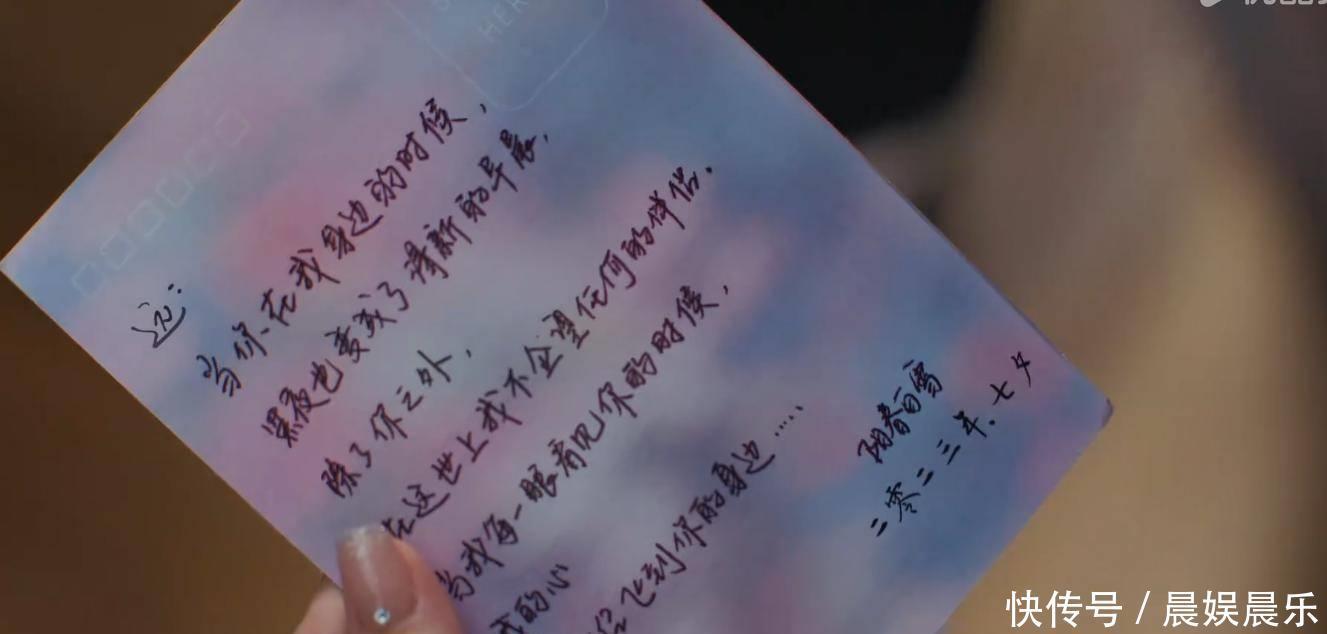 HER
远：
当你在我身边的时候，
黑夜也变成了清新的早晨，
除了你之外，
在这世上我不企望任何的伴侣．
当我每一眼看见你的时候，
我的心
飞到你的身边……
阳春白雪
二零二三年．七夕
快传号 / 晨娱晨乐